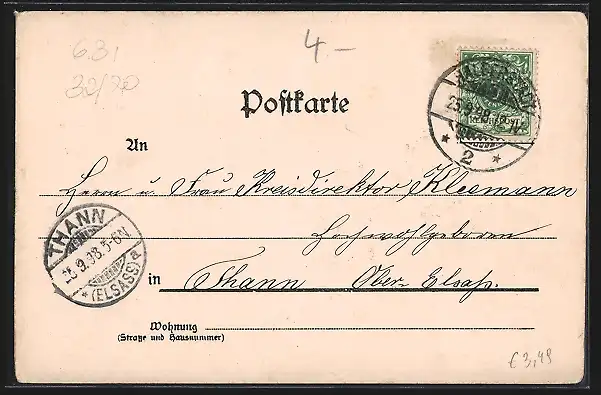 631
32/70
4.-
Postkarte
25.9.98. 8-9V.
REICHSPOST
* 2 *
An
Herrn u. Frau Kreisdirektor Kleemann
Hochwohlgeboren
THANN
9.98. 5-6N.
* (ELSASS) a
in Thann Ober-Elsass.
Wohnung
(Straße und Hausnummer)
€ 3,49